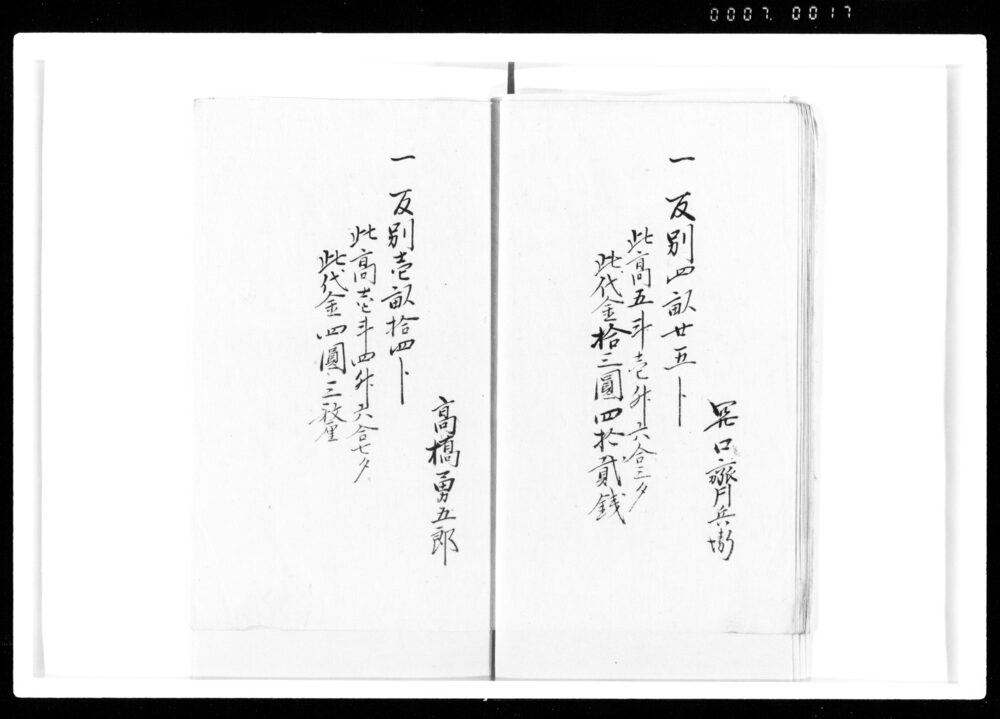 0007. 0017
一 反別四畝廿五卜
此高五斗壱升六合三夕
此代金拾三圓四拾貳銭
口齊兵衛
一 反別壱畝拾四卜
此高壱斗四升六合七夕
此代金四圓三釐
高橋勇五郎